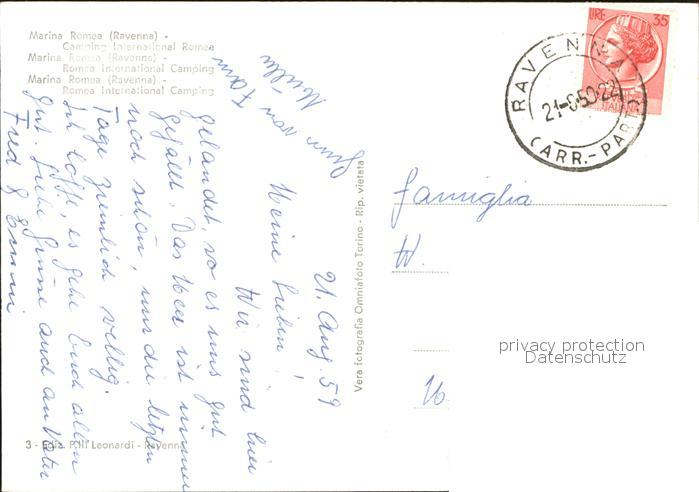 Marina Romea (Ravenna) -
Camping International Romea
Marina Romea (Ravenna) -
Romea International Camping
Marina Romea (Ravenna) -
Romea International Camping
LIRE 35
RAVENNA
(ARR.-PAR
21. Aug. 59
Meine Lieben!
Wir sind hier
gelandet, wo es uns gut
gefällt. Das Meer ist immer
noch schön, nur die letzten
Tage ziemlich wellig.
Ich hoffe, es gehe Euch allen
gut. Liebe Grüsse auch an Vater
Fred & Emmi
Vera Fotografia Omniafoto Torino - Rip. vietata
3 - Ediz. F.lli Leonardi - Ravenna
famiglia
W.
privacy protection
Datenschutz